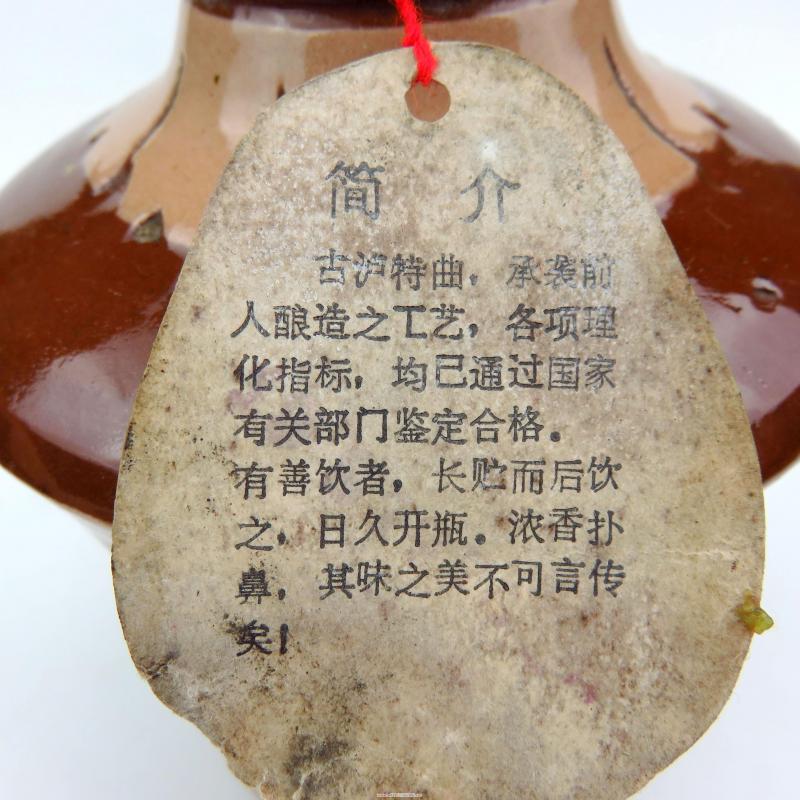 简 介
古泸特曲，承袭前
人酿造之工艺，各项理
化指标，均已通过国家
有关部门鉴定合格。
有善饮者，长贮而后饮
之，日久开瓶。浓香扑
鼻，其味之美不可言传
矣！